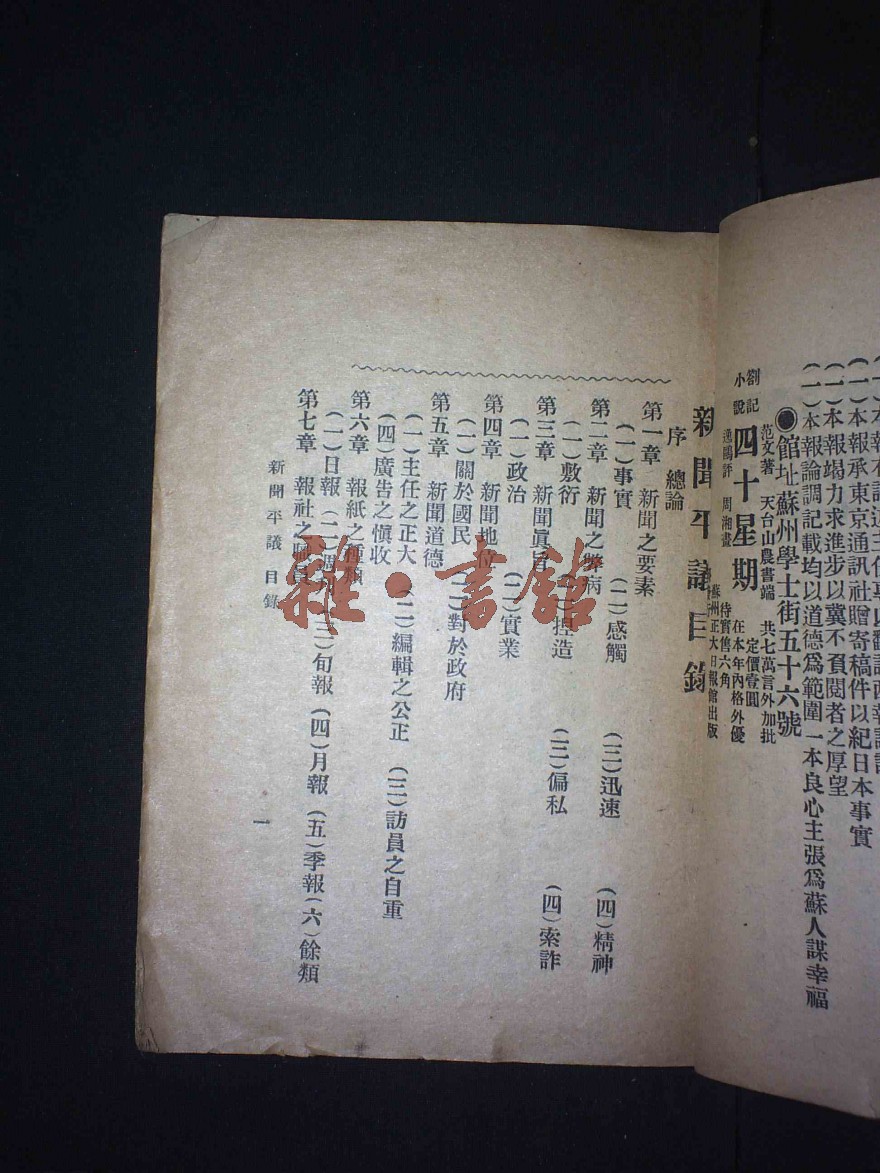 (一)本報承東京通訊社贈寄稿件以紀日本事實
(一)本報竭力求進步以冀不負閱者之厚望
(一)本報論調記載均以道德爲範圍一本良心主張爲蘇人謀幸福
●館址蘇州學士街五十六號
范文著 天台山農書端 共七萬言外加批
劄記小說 四十星期
定價壹圓
在本年內格外優待實售六角
逸鷗評 周湘畫
蘇州正大日報館出版
新聞平議目錄
序 總論
第一章 新聞之要素
(一)事實 (二)感觸 (三)迅速 (四)精神
第二章 新聞之弊病
(一)敷衍 (二)捏造 (三)偏私 (四)索詐
第三章 新聞眞旨
(一)政治 (二)實業
第四章 新聞地位
(一)關於國民 (二)對於政府
第五章 新聞道德
(一)主任之正大 (二)編輯之公正 (三)訪員之自重
(四)廣告之愼收
第六章 報紙之種類
(一)日報 (二)週報 (三)旬報 (四)月報 (五)季報 (六)餘類
第七章 報社之
新聞平議 目錄
一
雜·書館